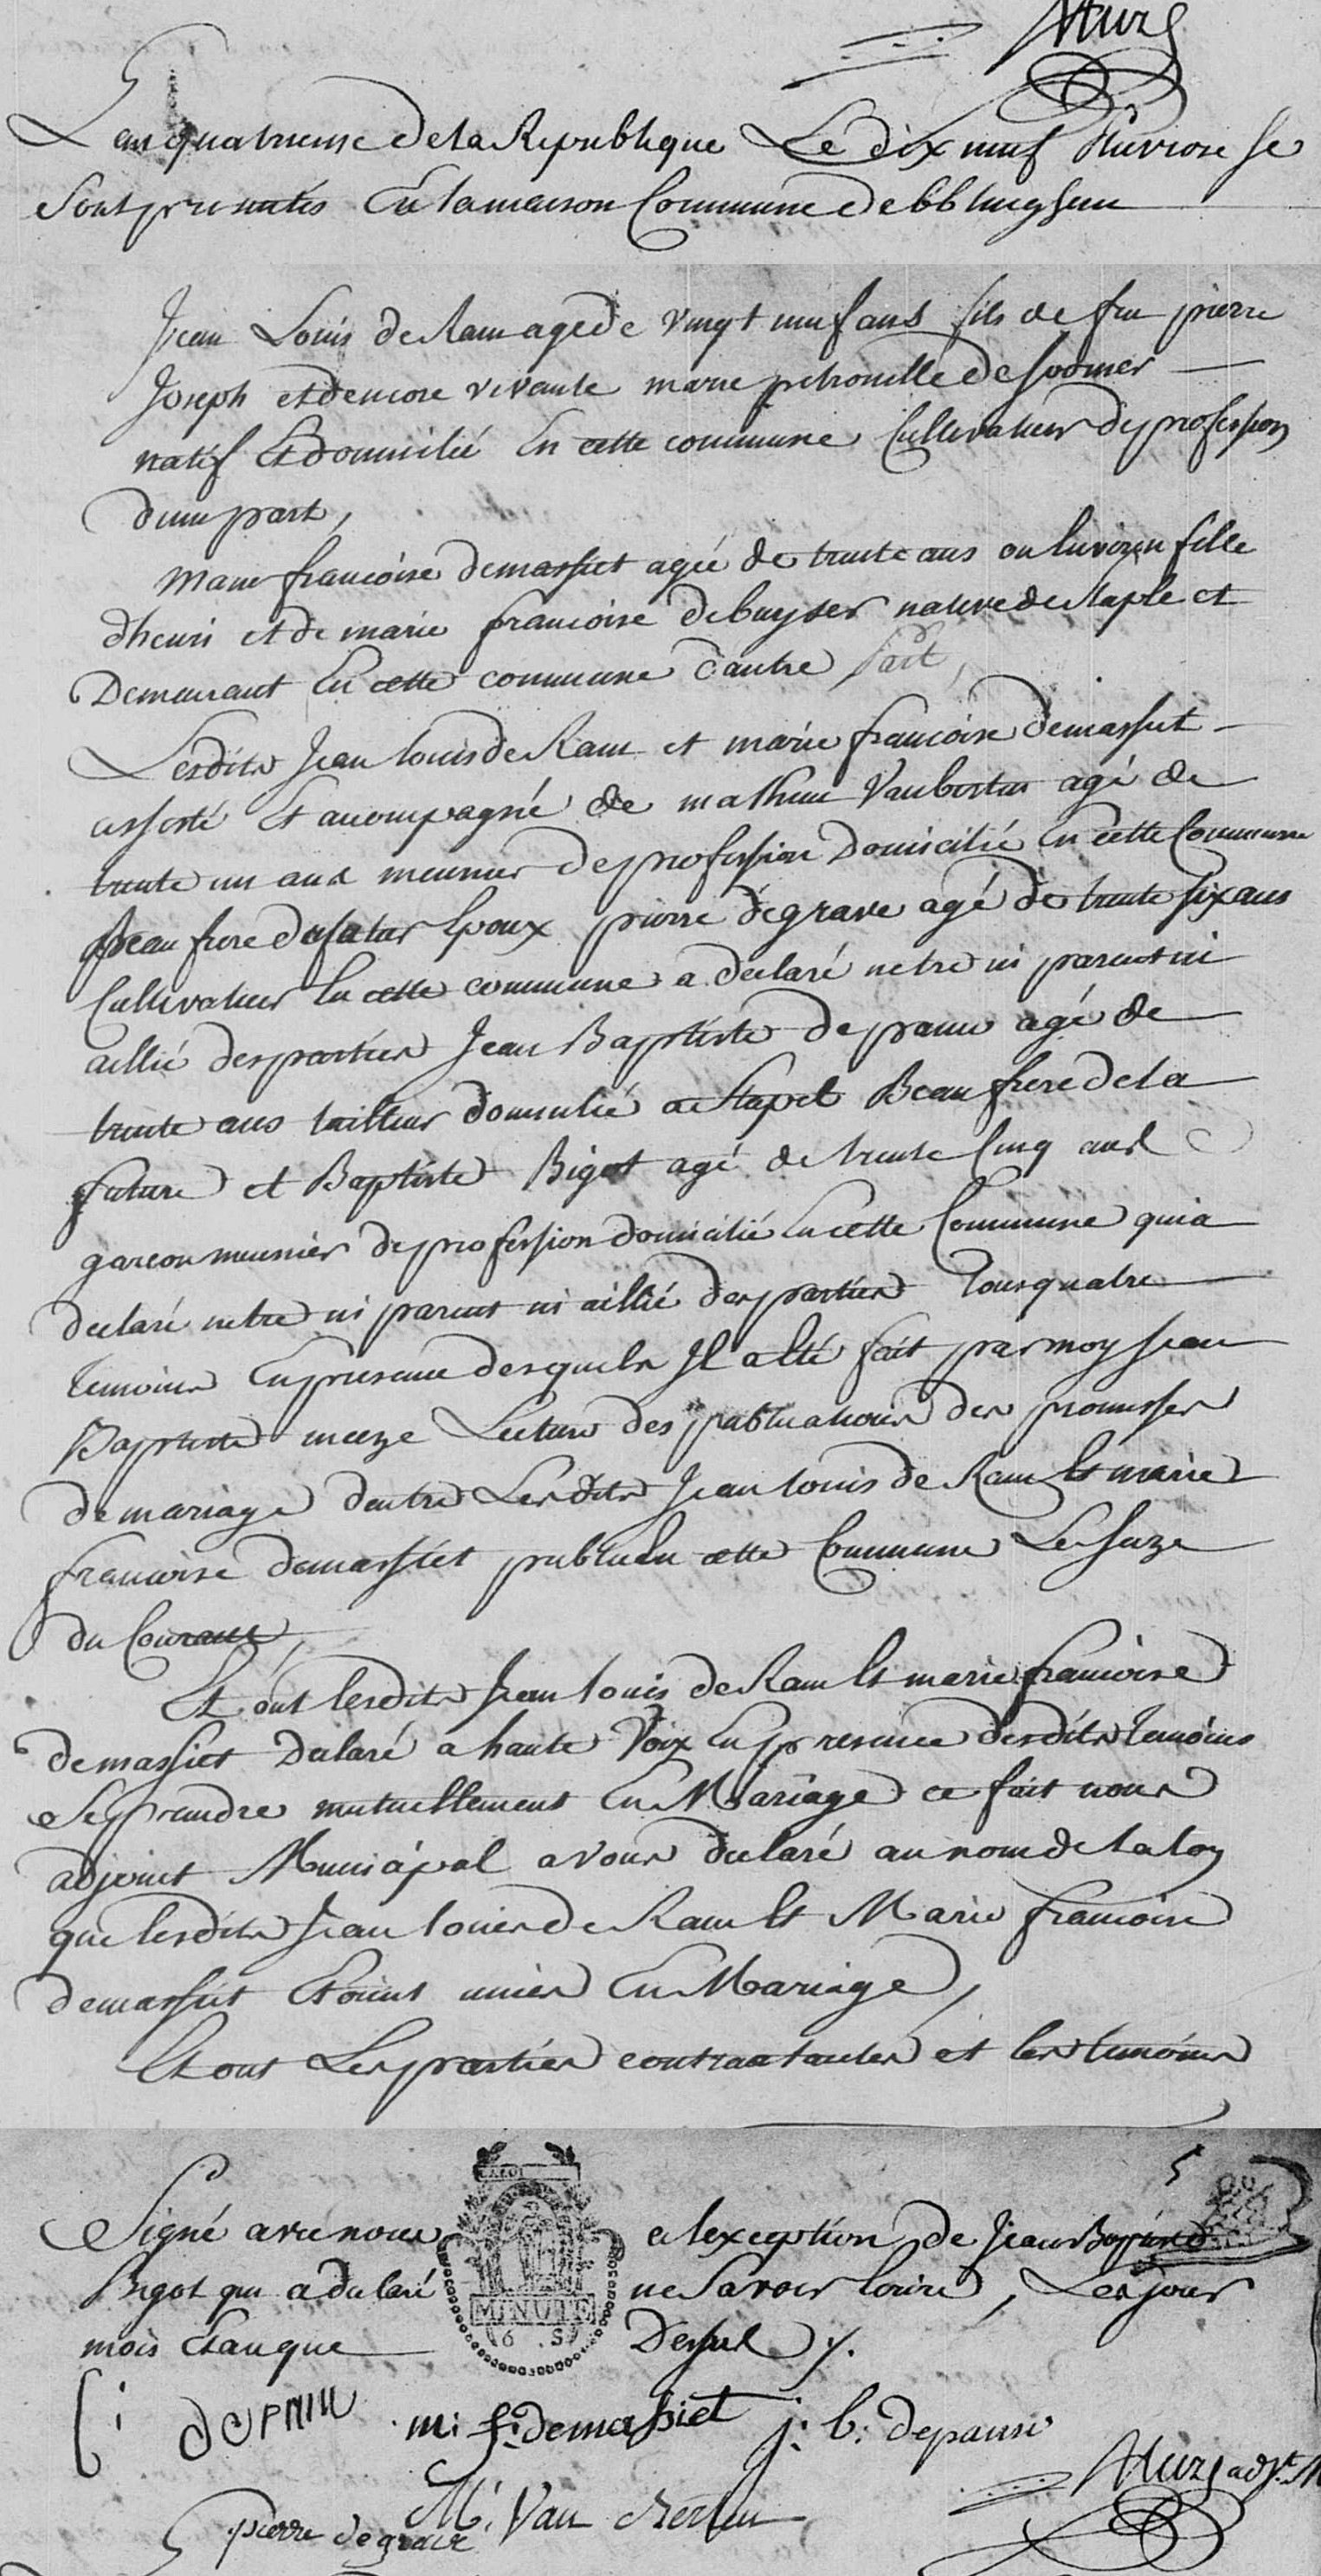 Meeze
L'an quatrieme de la Republique Le dix neuf Pluviose se
sont presentés En la maison Commune d'ebblinghem
Jean Louis de Ram agé de vingt neuf ans fils de feu pierre
Joseph et d'encore vivante marie petronille de
natif Et domicilié En cette commune Cultivateur de profession
d'une part,
Marie francoise demassiet agée de trente ans ou environ fille
d'henri et de marie francoise debuyser native de staple et
Demeurant En cette commune d'autre part,
Lesdits Jean louis de Ram et marie francoise demassiet
assisté Et accompagné de mathieu Vanberten agé de
trente un ans meunier de profession Domicilié En cette Commune
Beau frere du futur Epoux pierre degrave agé de trente six ans
Cultivateur En cette commune a declaré netre ni parent ni
aillié des parties Jean Baptiste depauw agé de
trente ans tailleur domicilié a Stapel Beau frere de la
future et Baptiste Bigot agé de trente Cinq ans
garcon meunier de profession domicilié En cette Commune qui a
declaré netre ni parent ni aillié des parties Tous quatre
temoins En presence desquels Il a Eté fait par moy Jean
Baptiste meeze Lecture des publications des promesses
de mariage d'entre Lesdits Jean louis de Ram Et marie
francoise demassiet publié En cette Commune Le seize
du Courant,
Et ont lesdits Jean louis de Ram Et marie francoise
demassiet Declaré a haute Voix En presence desdits temoins
Se prendre mutuellement En Mariage ce fait nous
adjoint Municipal avons declaré au nom de la loy
que lesdits Jean louis de Ram Et Marie francoise
demassiet Etoient unies En Mariage,
Et ont Les parties contractantes et les temoins
Signé avec nous a lexception de Jean Baptiste
Bigot qui a declaré ne Savoir Ecrire, Les jour
mois Et an que Dessus
MINUTE
m: f: demassiet j: b: depauw
M. Van Berten Meeze adjt. M
pierre degrave